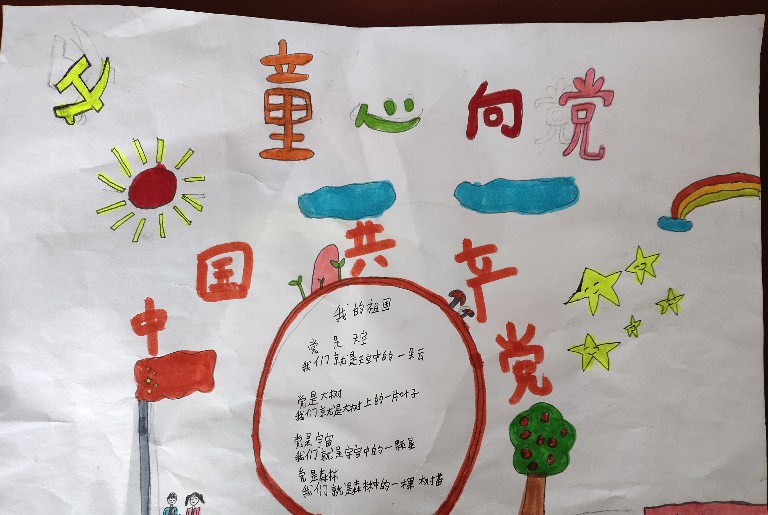 童心向党
中国共产党
我的祖国
党是天空
我们就是天空中的一朵云
党是大树
我们就是大树上的一片叶子
党是宇宙
我们就是宇宙中的一颗星
党是森林
我们就是森林中的一棵树苗